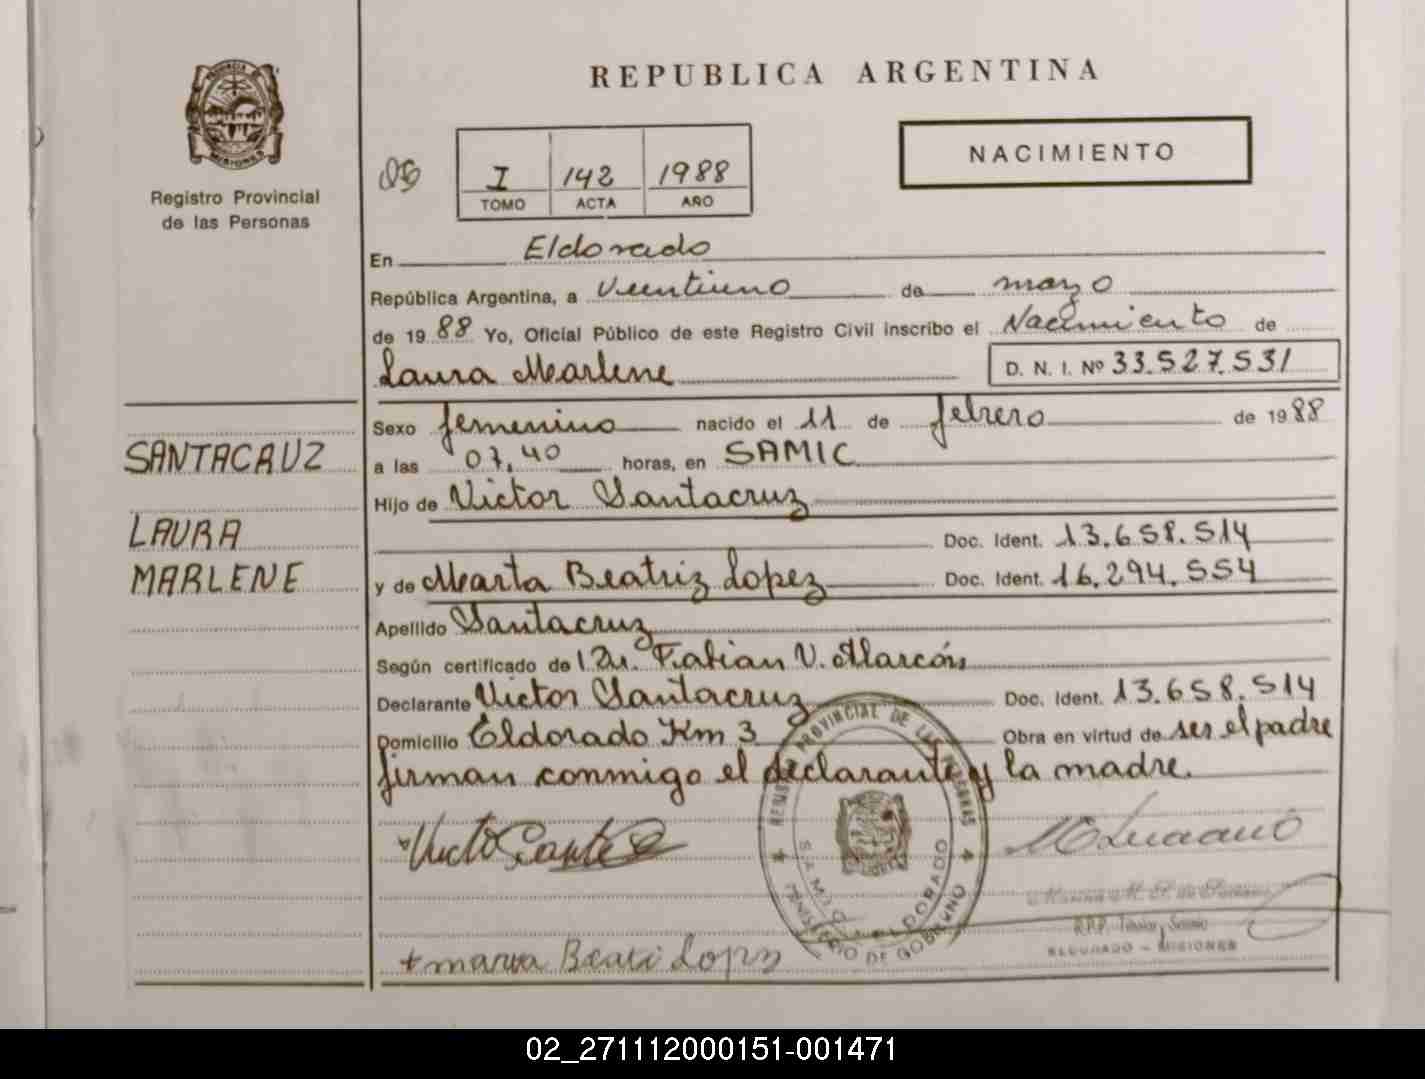 PROVINCIA DE
MISIONES
Registro Provincial
de las Personas
REPUBLICA ARGENTINA
NACIMIENTO
I 142 1988
TOMO ACTA AÑO
En Eldorado
República Argentina, a Veintiuno de marzo
de 1988 Yo, Oficial Público de este Registro Civil inscribo el Nacimiento de
Laura Marlene D. N. I. Nº 33.527.531
Sexo femenino nacido el 11 de febrero de 1988
SANTACRUZ
a las 07,40 horas, en SAMIC
Hijo de Victor Santacruz
LAURA
Doc. Ident. 13.658.514
MARLENE
y de Marta Beatriz Lopez Doc. Ident. 16.294.554
Apellido Santacruz
Según certificado de Dr. Fabian V. Alarcón
Declarante Victor Santacruz Doc. Ident. 13.658.514
Domicilio Eldorado Km 3 Obra en virtud de ser el padre
firman conmigo el declarante y la madre.
REGISTRO PROVINCIAL DE LAS PERSONAS
S.A.M.I.C. ELDORADO
MINISTERIO DE GOBIERNO
Victor
ELDORADO - MISIONES
Lopez
02_271112000151-001471